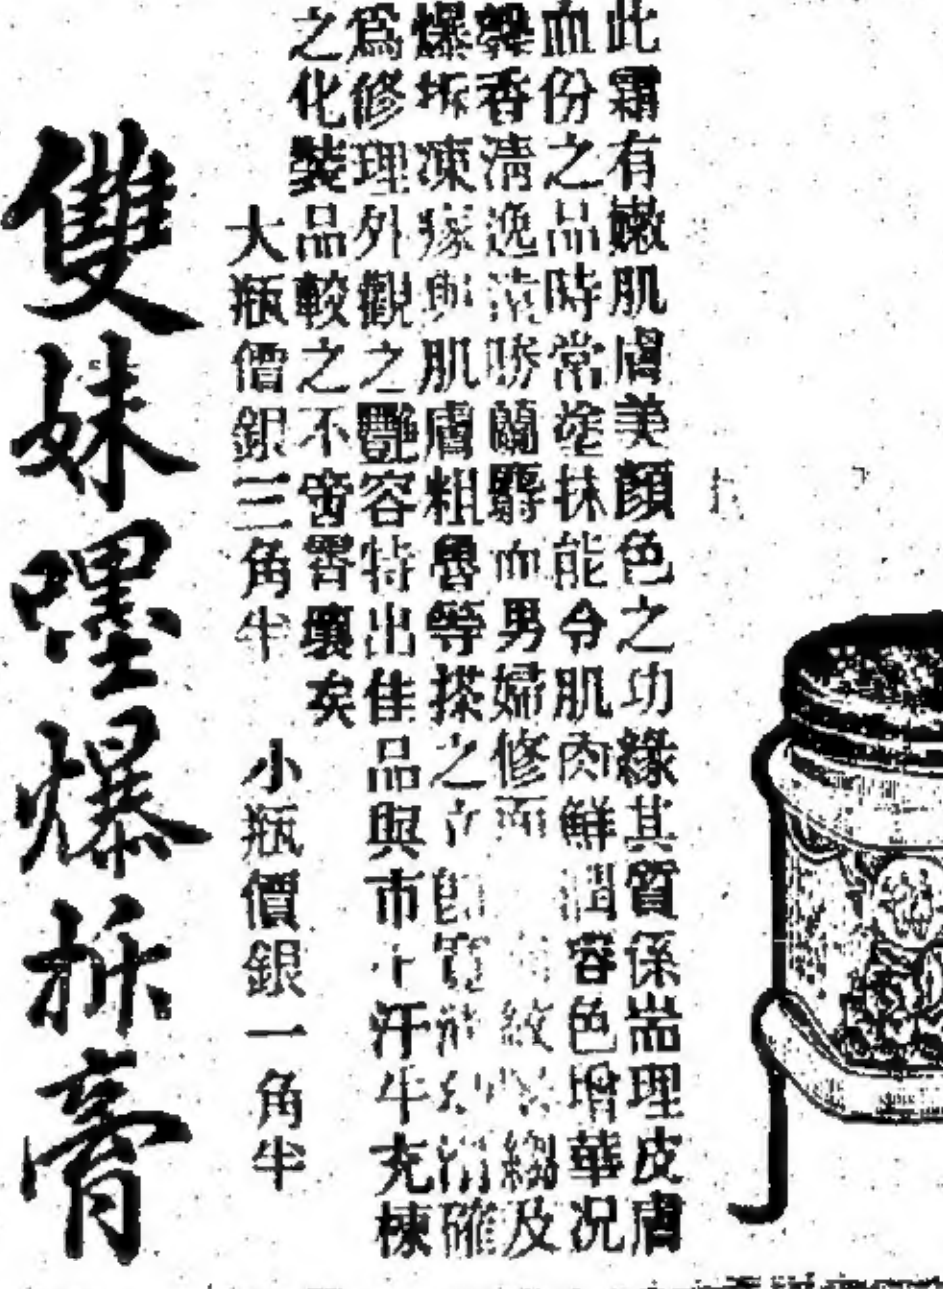 此霜有嫩肌膚美顏色之功緣其質係耑理皮膚
血份之品時常塗抹能令肌肉鮮潤容色增華况
香淸逸遠勝蘭麝而男婦修面紋縐及
爆坼凍瘃與肌膚粗魯等搽之立卽確
爲修理外觀之艷容特出佳品與市上汗牛充棟
之化裝品較之不啻霄壤矣
大瓶價銀三角半 小瓶價銀一角半
雙妹嚜爆拆膏